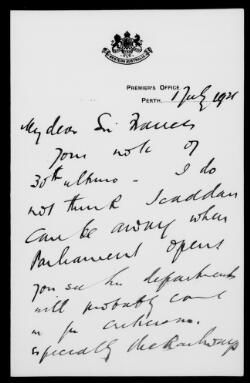 PREMIER'S OFFICE
PERTH. 1 July 1921
My dear Sir Frances
Your note of
30th ultimo - I do
not think Scaddan
can be away when
Parliament opens
you see his departments
will probably come
in for criticism.
especially the Railways